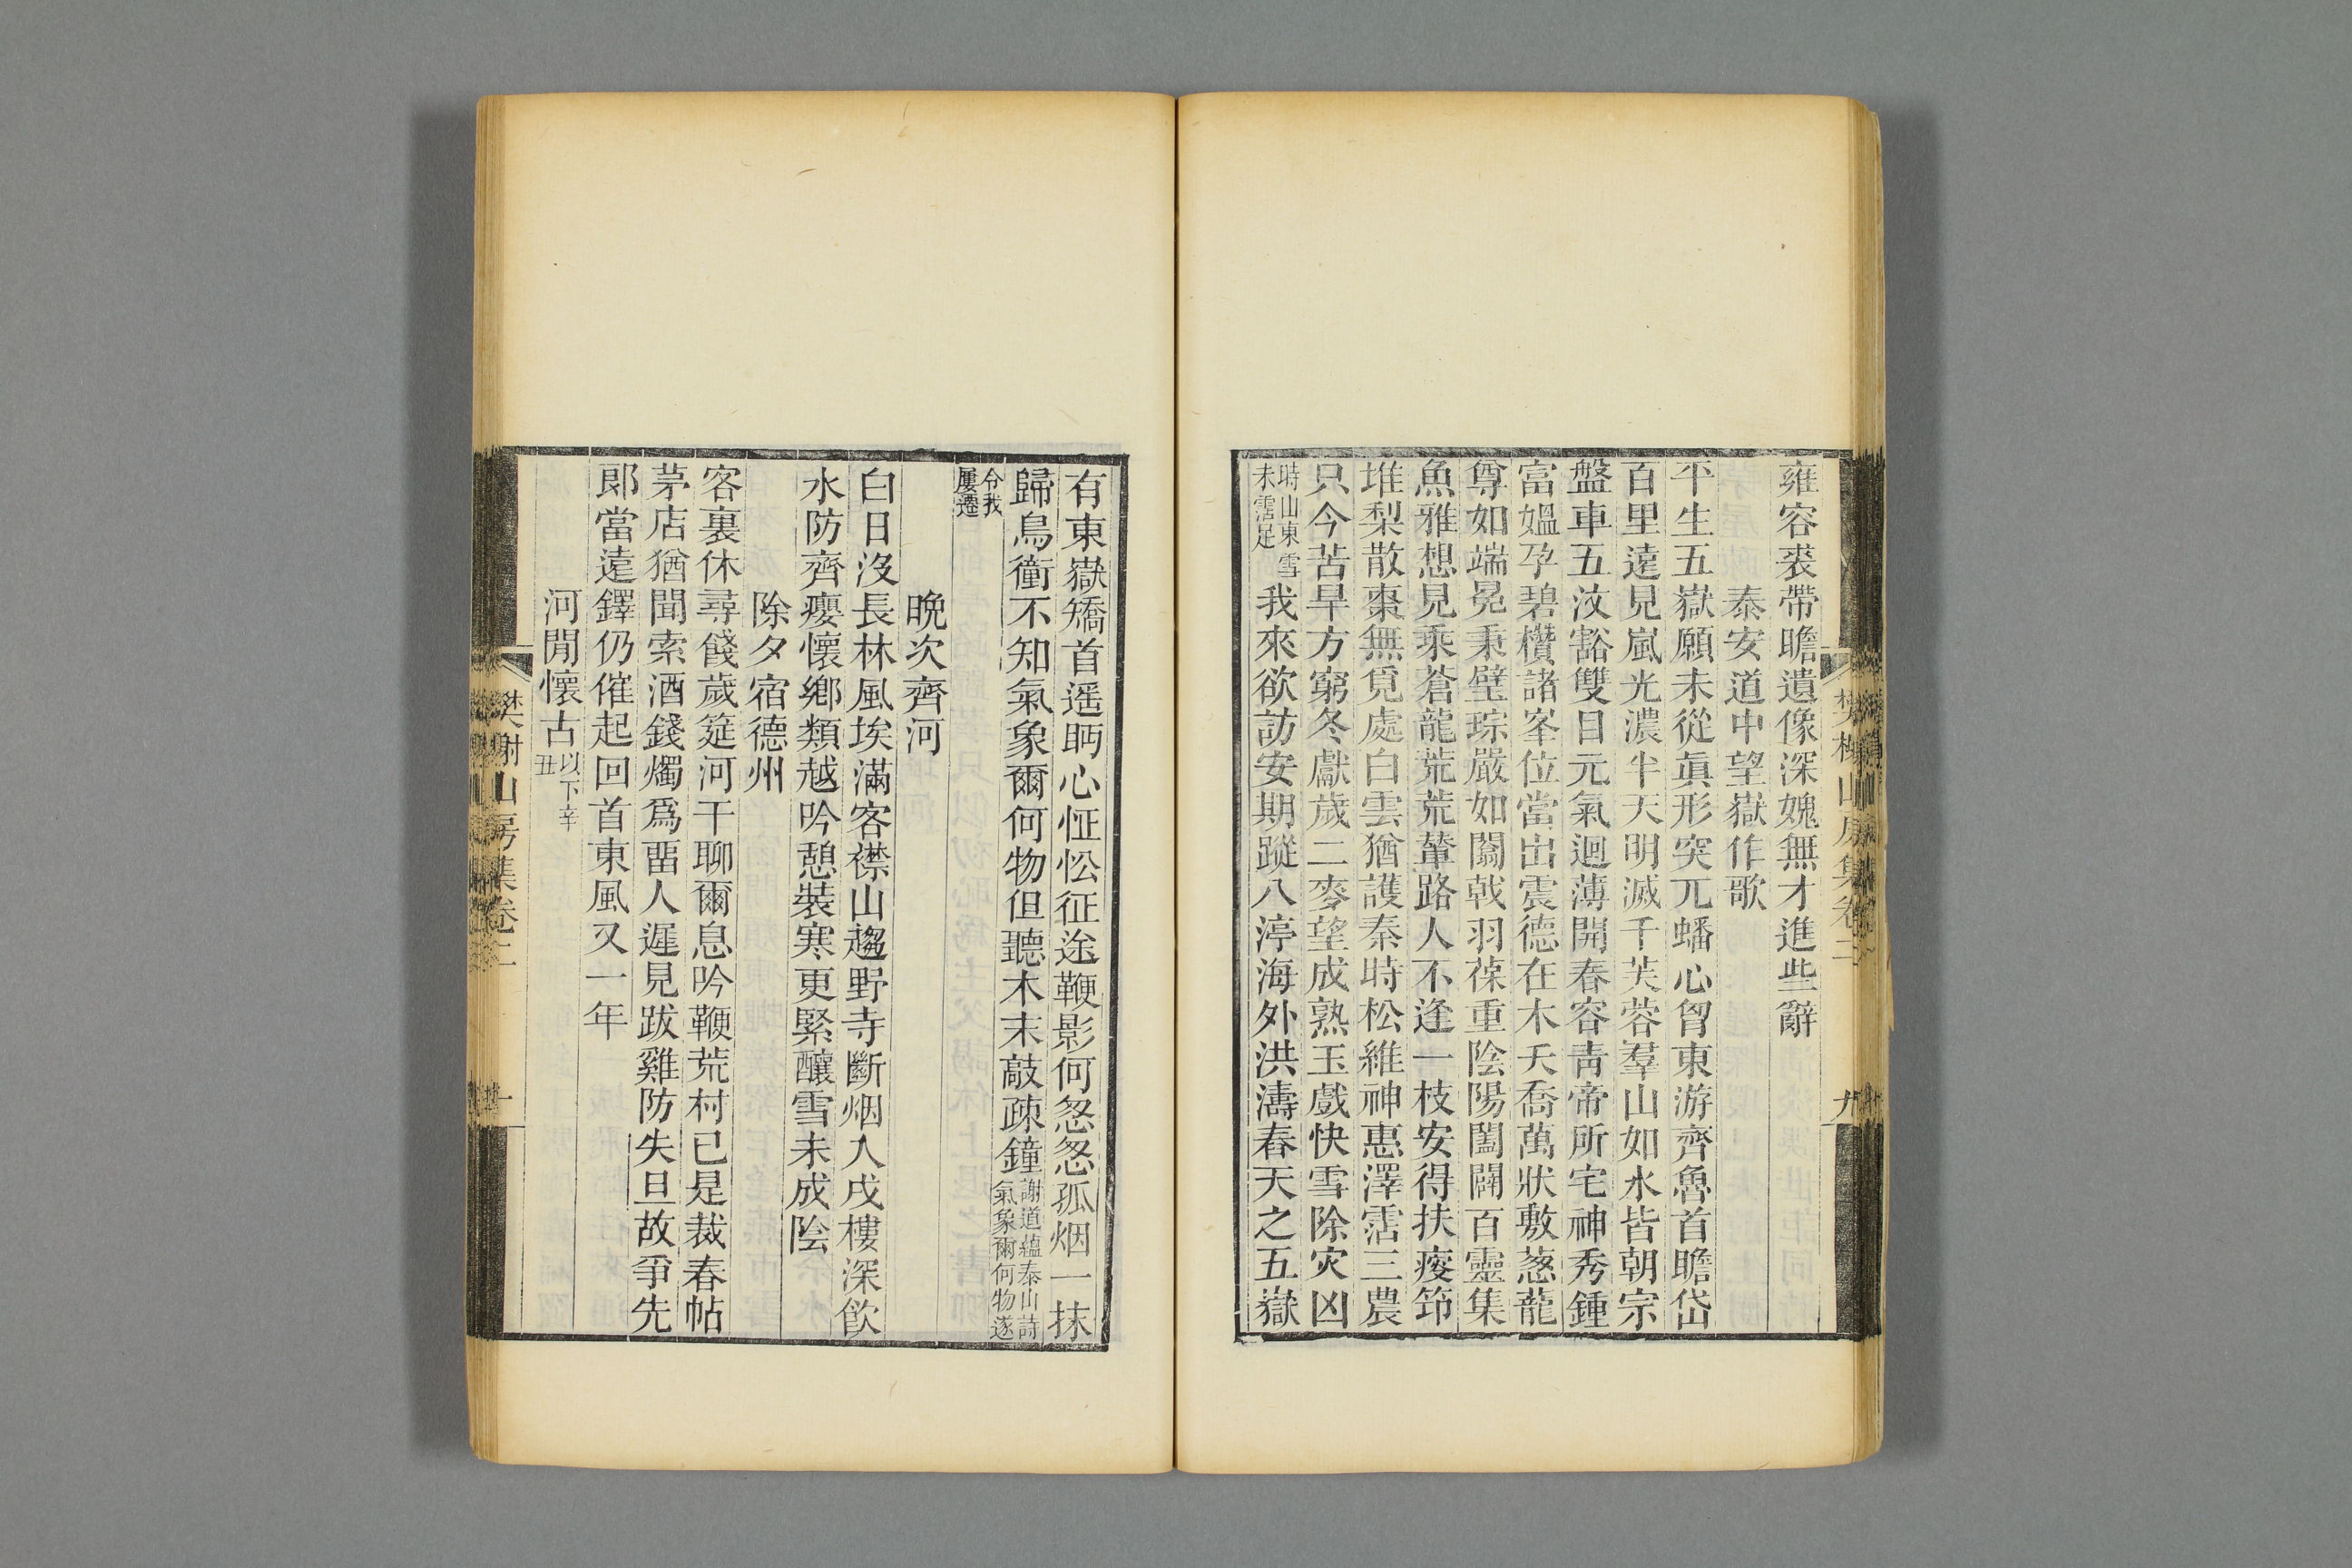 雍容裘帶瞻遺像深媿無才進些辭
泰安道中望嶽作歌
平生五嶽願未從眞形突兀蟠心胷東游齊魯首瞻岱
百里遠見嵐光濃半天明滅千芙蓉羣山如水皆朝宗
盤車五汶豁雙目元氣迴薄開春容靑帝所宅神秀鍾
富媼孕碧欑諸峯位當出震德在木夭喬萬狀敷蔥蘢
尊如端冕秉璧琮嚴如闟戟羽葆重陰陽闔闢百靈集
魚雅想見乘蒼龍荒荒輦路人不逢一枝安得扶痠筇
堆梨散棗無覓處白雲猶護秦時松維神惠澤霑三農
只今苦旱方窮冬獻歲二麥望成熟玉戲快雪除灾凶
時山東雪未霑足我來欲訪安期蹤八渟海外洪濤舂天之五嶽
樊榭山房集卷二
九
有東嶽矯首遥眄心怔忪征途鞭影何怱怱孤烟一抹
歸鳥衝不知氣象爾何物但聽木末敲疎鐘謝道蘊泰山詩氣象爾何物遂
令我屢遷
晚次齊河
白日沒長林風埃滿客襟山趨野寺斷烟入戍樓深飮
水防齊癭懷鄉類越吟憩裝寒更緊釀雪未成陰
除夕宿德州
客裏休尋餞歲筵河干聊爾息吟鞭荒村已是裁春帖
茅店猶聞索酒錢燭爲畱人遲見跋雞防失旦故爭先
郞當遠鐸仍催起回首東風又一年
河閒懷古以下辛丑
樊榭山房集卷二